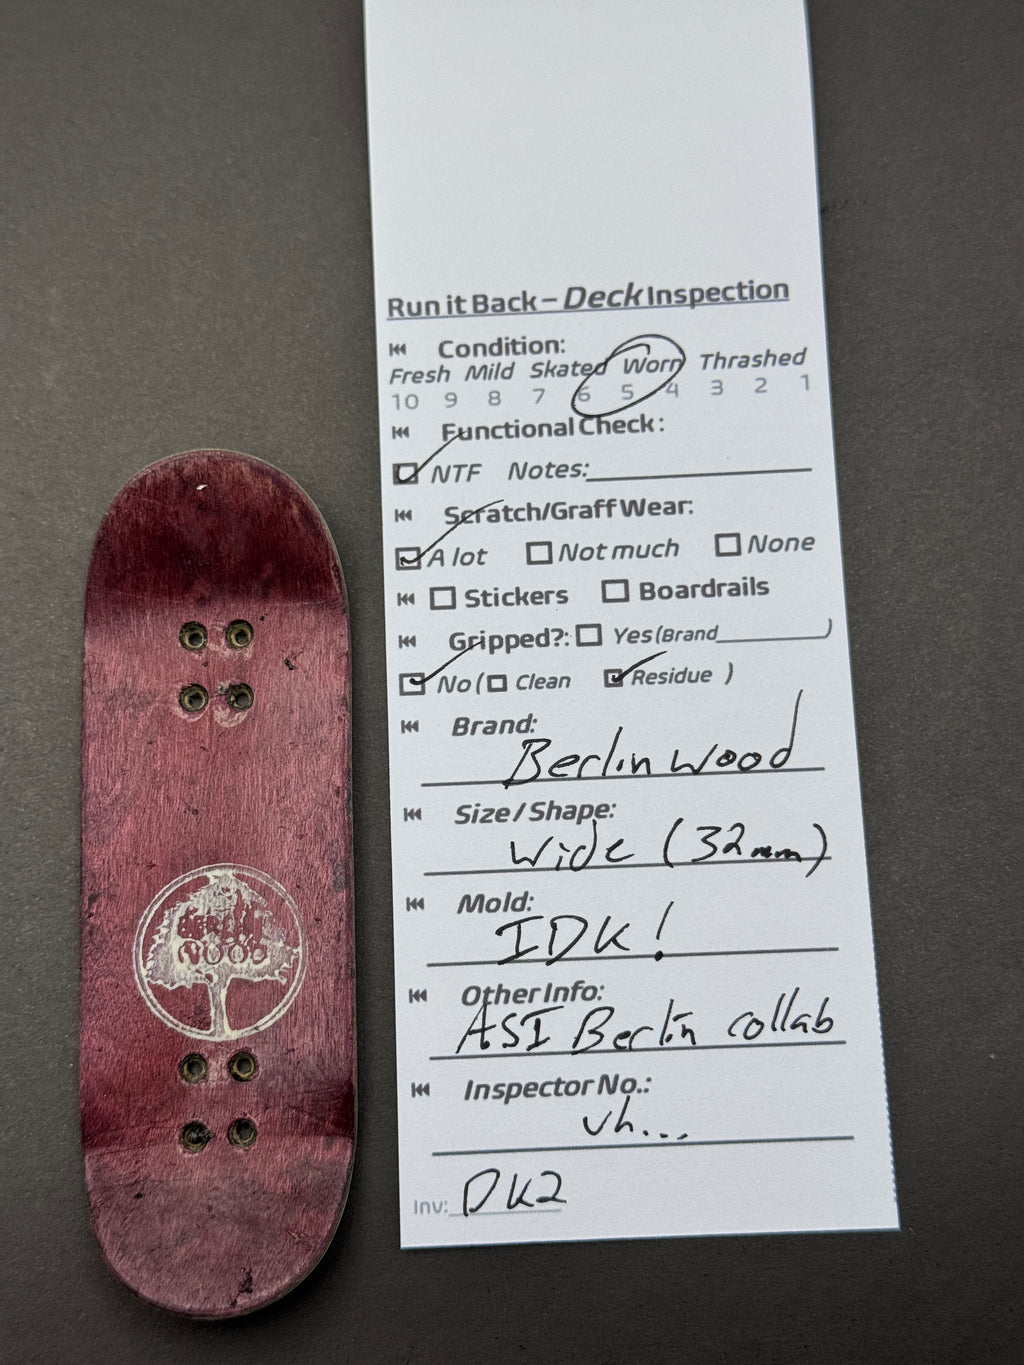 Run it Back – Deck Inspection
Condition:
Fresh Mild Skated Worn Thrashed
10 9 8 7 6 5 4 3 2 1
Functional Check:
NTF Notes:
Scratch/Graff Wear:
A lot Not much None
Stickers Boardrails
Gripped?: Yes (Brand )
No ( Clean Residue )
Brand:
Berlin Wood
Size / Shape:
Wide (32mm)
Mold:
IDK!
Other Info:
ASI Berlin collab
Inspector No.:
uh...
Inv: DK2
BERLIN
WOOD